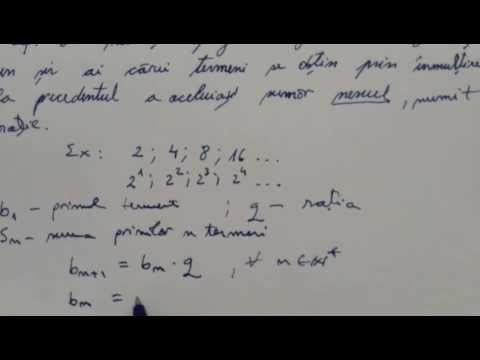 un șir ai cărui termeni se obțin prin înmulțire
la precedentul a aceluiași numor nenul, numit
rație.
Ex: 2; 4; 8; 16 ...
2¹; 2²; 2³; 2⁴ ...
b₁ - primul termen ; q - rația
Sₙ - suma primilor n termeni
bₙ₊₁ = bₙ · q , ∀ n ∈ ℕ*
bₙ =